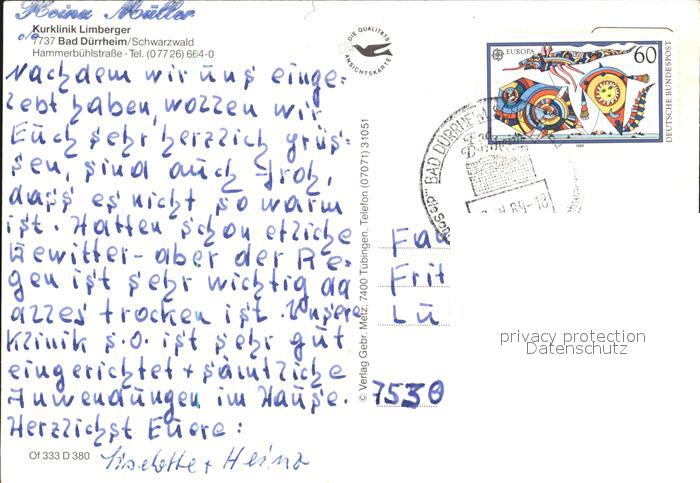 Heinz Müller
c/o
Kurklinik Limberger
7737 Bad Dürrheim/Schwarzwald
Hammerbühlstraße · Tel. (07726) 664-0
Nachdem wir uns einge-
lebt haben, wollen wir
Euch sehr herzlich grüs-
sen, sind auch froh,
dass es nicht so warm
ist. Hatten schon etliche
Gewitter - aber der Re-
gen ist sehr wichtig da
alles trocken ist. Unsere
Klinik s.o. ist sehr gut
eingerichtet + sämtliche
Anwendungen im Hause.
Herzlichst Euere:
Liselotte + Heinz
Of 333 D 380
DIE QUALITÄTS
ANSICHTSKARTE
© Verlag Gebr. Metz, 7400 Tübingen, Telefon (07071) 31051
EUROPA
60
DEUTSCHE BUNDESPOST
1989
BAD DÜRRHEIM
89-18
Fa
Frit
Lu
7530
privacy protection
Datenschutz